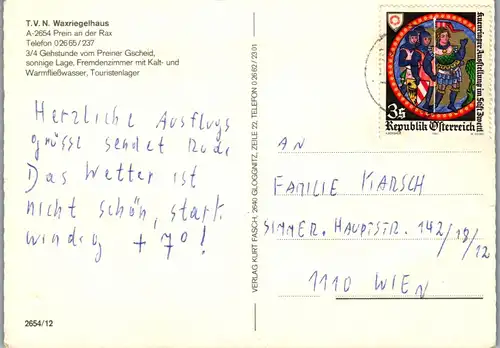 T. V. N. Waxriegelhaus
A-2654 Prein an der Rax
Telefon 0 26 65 / 237
3/4 Gehstunde vom Preiner Gscheid,
sonnige Lage. Fremdenzimmer mit Kalt- und
Warmfließwasser, Touristenlager
Herzliche Ausflugs
grüsse sendet
Das Wetter ist
nicht schön, stark
windig + 7° !
2654/12
VERLAG KURT FASCH, 2640 GLOGGNITZ, ZEILE 22, TELEFON 0 26 62 / 23 01
Kuenringer Ausstellung im Stift Zwettl
3 S
Republik Österreich
AN
FAMILIE KARSCH
SIMMER. HAUPTSTR. 142/18/12
1110 WIEN